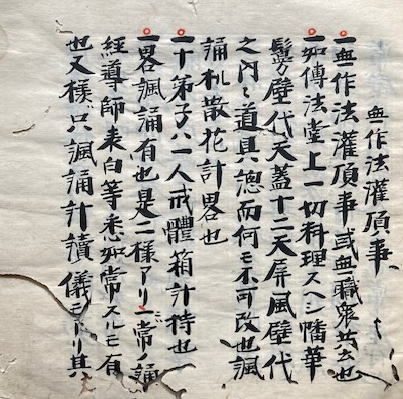 無作法灌頂事
一無作法灌頂事或無職衆共云也
一如傳法堂上一切料理スヘシ幡華
鬘壁代天蓋十二天屏風壁代
之内ニ道具惣而何モ不可改也諷
誦机散花計畧也
一十弟子八一人戒體箱計持也
一畧諷誦有也是ニ二樣アリ一常ノ諷
經導師表白等悉如常スルモ有
也又樣ハ只諷誦計讀儀モアリ其